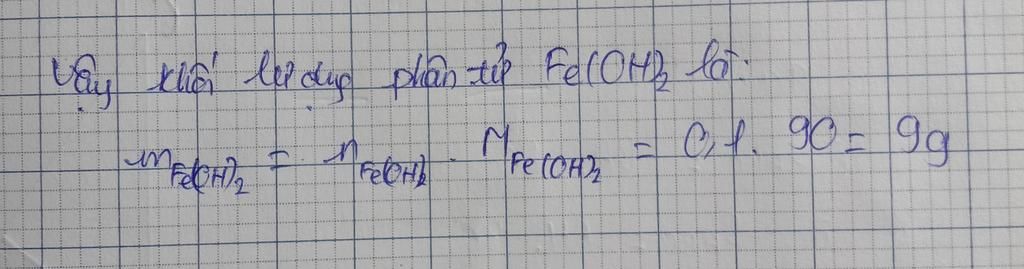 Vậy khối lượng phân tử Fe(OH)2 là:
mFe(OH)2 = nFe(OH)2 . MFe(OH)2 = 0,1. 90 = 9g